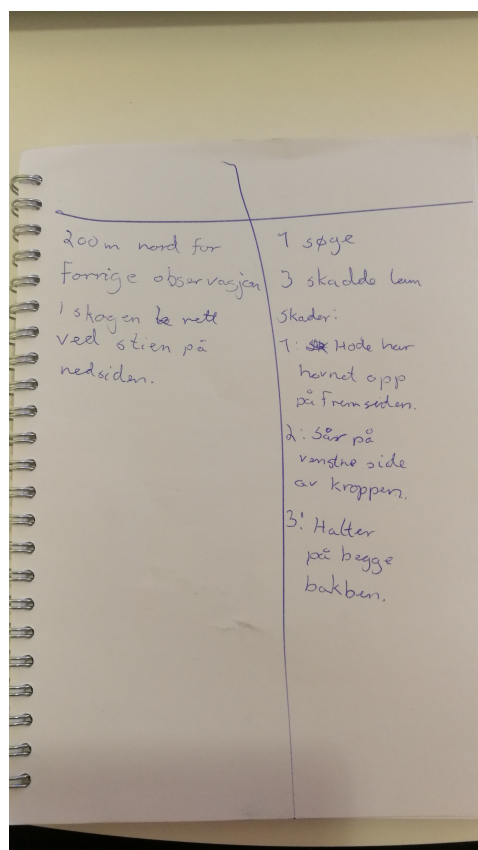 200m nord for
Forrige observasjon
I skogen rett
ved stien på
nedsiden.
1 søye
3 skadde lam
Skader:
1: Hode har
hovnet opp
på fremsiden.
2: Sår på
venstre side
av kroppen.
3: Halter
på begge
bakben.